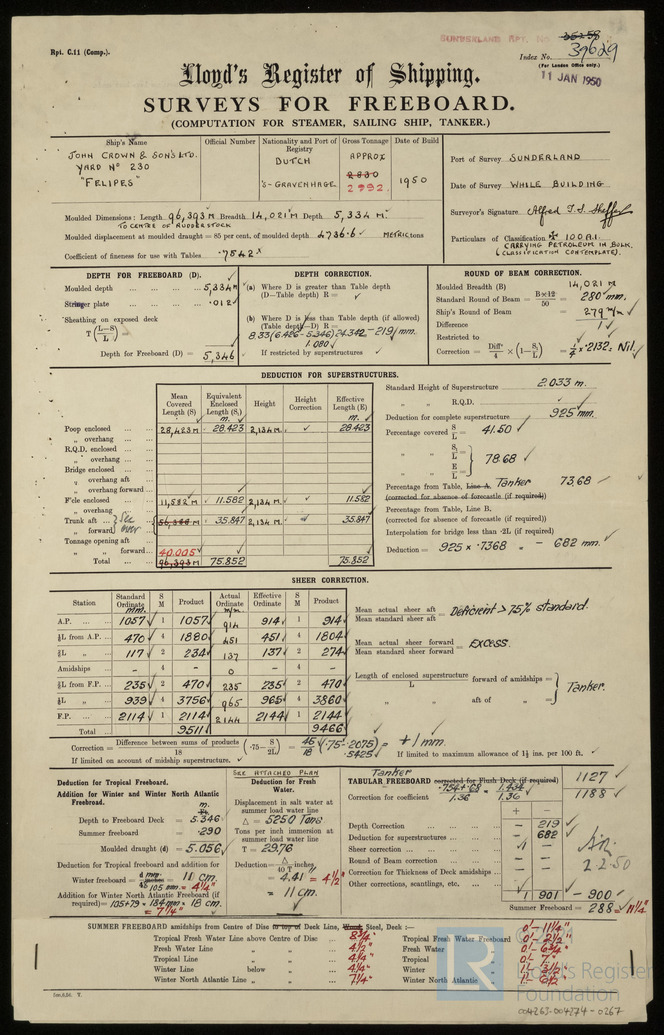 Rpt. C.11 (Comp.).
SUNDERLAND RPT. No. 35258
Index No. 39629
(For London Office only.)
11 JAN 1950
Lloyd's Register of Shipping.
SURVEYS FOR FREEBOARD.
(COMPUTATION FOR STEAMER, SAILING SHIP, TANKER.)
Ship's Name
Official Number
Nationality and Port of Registry
Gross Tonnage
Date of Build
JOHN CROWN & SONS LTD.
YARD No 230
"FELIPES"
DUTCH
'S-GRAVENHAGE
APPROX
2830
2992.
1950
Port of Survey SUNDERLAND
Date of Survey WHILE BUILDING
Surveyor's Signature
Particulars of Classification ✠ 100 A.1.
CARRYING PETROLEUM IN BULK.
(CLASSIFICATION CONTEMPLATE).
Moulded Dimensions: Length 96,393 M Breadth 14,021 M Depth 5,334 M.
TO CENTRE OF RUDDERSTOCK
Moulded displacement at moulded draught = 85 per cent. of moulded depth 4736.6 METRIC tons
Coefficient of fineness for use with Tables .7542
DEPTH FOR FREEBOARD (D).
Moulded depth 5,334 m
Stringer plate .012
Sheathing on exposed deck
T (L−S/L) =
Depth for Freeboard (D) = 5,346
DEPTH CORRECTION.
(a) Where D is greater than Table depth
(D−Table depth) R =
(b) Where D is less than Table depth (if allowed)
(Table depth−D) R =
8.33 (6.426 − 5.346) 24.342 = −219 mm.
1.080
If restricted by superstructures
ROUND OF BEAM CORRECTION.
Moulded Breadth (B) 14,021 M
Standard Round of Beam = B×12/50 = 280 mm.
Ship's Round of Beam = 279 m/m
Difference 1
Restricted to
Correction = Diff/4 × (1−S₁/L) = 1/4 × .2132 = Nil.
DEDUCTION FOR SUPERSTRUCTURES.
Mean Covered Length (S)
Equivalent Enclosed Length (S₁)
Height
Height Correction
Effective Length (E)
m. m.
Poop enclosed 28,423 M 28.423 2,134 M. 28.423
„ overhang
R.Q.D. enclosed
„ overhang
Bridge enclosed
„ overhang aft
„ overhang forward
F'cle enclosed 11,582 M 11.582 2,134 M. 11.582
„ overhang
Trunk aft
„ forward
See over
56,388 M 35.847 2,134 M. 35.847
Tonnage opening aft
„ „ forward 40.005
Total 96,393 M 75.852 75.852
Standard Height of Superstructure 2.033 m.
„ „ R.Q.D.
Deduction for complete superstructure 925 mm.
Percentage covered S/L = 41.50
„ „ S₁/L =
„ „ E/L = 78.68
Percentage from Table, Line A. Tanker 73.68
(corrected for absence of forecastle (if required))
Percentage from Table, Line B.
(corrected for absence of forecastle (if required))
Interpolation for bridge less than ·2L (if required)
Deduction = 925 × .7368 = − 682 mm.
SHEER CORRECTION.
Station
Standard Ordinate
S M
Product
Actual Ordinate
Effective Ordinate
S M
Product
mm. m/m
A.P. 1057 1 1057 914 914 1 914
⅙L from A.P. 470 4 1880 451 451 4 1804
⅓L „ 117 2 234 137 137 2 274
Amidships - 4 - 0 - 4 -
⅓L from F.P. 235 2 470 235 235 2 470
⅙L „ 939 4 3756 965 965 4 3860
F.P. 2114 1 2114 2144 2144 1 2144
Total 9511 9466
Mean actual sheer aft
Mean standard sheer aft
= Deficient > 75% standard.
Mean actual sheer forward
Mean standard sheer forward
= Excess.
Length of enclosed superstructure forward of amidships
L
=
„ „ aft of „ =
Tanker.
Correction = Difference between sums of products/18 (·75−S/2L) = 45/18 (.75−.2075) = +1 mm.
.5425
If limited on account of midship superstructure.
If limited to maximum allowance of 1½ ins. per 100 ft.
Deduction for Tropical Freeboard.
Addition for Winter and Winter North Atlantic Freeboard.
m.
Depth to Freeboard Deck = 5.346
Summer freeboard = .290
Moulded draught (d) = 5.056
Deduction for Tropical freeboard and addition for
Winter freeboard = = 11 cm.
105 mm. = 4¼"
Addition for Winter North Atlantic Freeboard (if
required) = 105+79 = 184 mm = 18 cm.
= 7¼"
SEE ATTACHED PLAN
Deduction for Fresh Water.
Displacement in salt water at summer load water line
Δ = 5250 Tons
Tons per inch immersion at summer load water line
T = 29.76
Deduction = Δ/40 T inches
= 4.41" = 4½"
= 11 cm.
Tanker
TABULAR FREEBOARD corrected for Flush Deck (if required) 1127
Correction for coefficient .754+.68/1.36 = 1.434/1.36 1188
+ −
Depth Correction − 219
Deduction for superstructures − 682
Sheer correction 1 −
Round of Beam correction − −
Correction for Thickness of Deck amidships − −
Other corrections, scantlings, etc. − −
1 901 − 900
Summer Freeboard = 288 = 11¼"
2.2.50
SUMMER FREEBOARD amidships from Centre of Disc to top of Deck Line, Wood, Steel, Deck :—
Tropical Fresh Water Line above Centre of Disc 8¾"
Fresh Water Line „ „ 4½"
Tropical Line „ „ 4¼"
Winter Line below „ „ 4¼"
Winter North Atlantic Line „ „ 7¼"
0'-11¼"
Tropical Fresh Water Freeboard 0'-2½"
Fresh Water „ 0'-6¾"
Tropical „ 0'-7"
Winter „ 1'-3½"
Winter North Atlantic „ 1'-6½"
Lloyd's Register
Foundation
004263-004274-0267